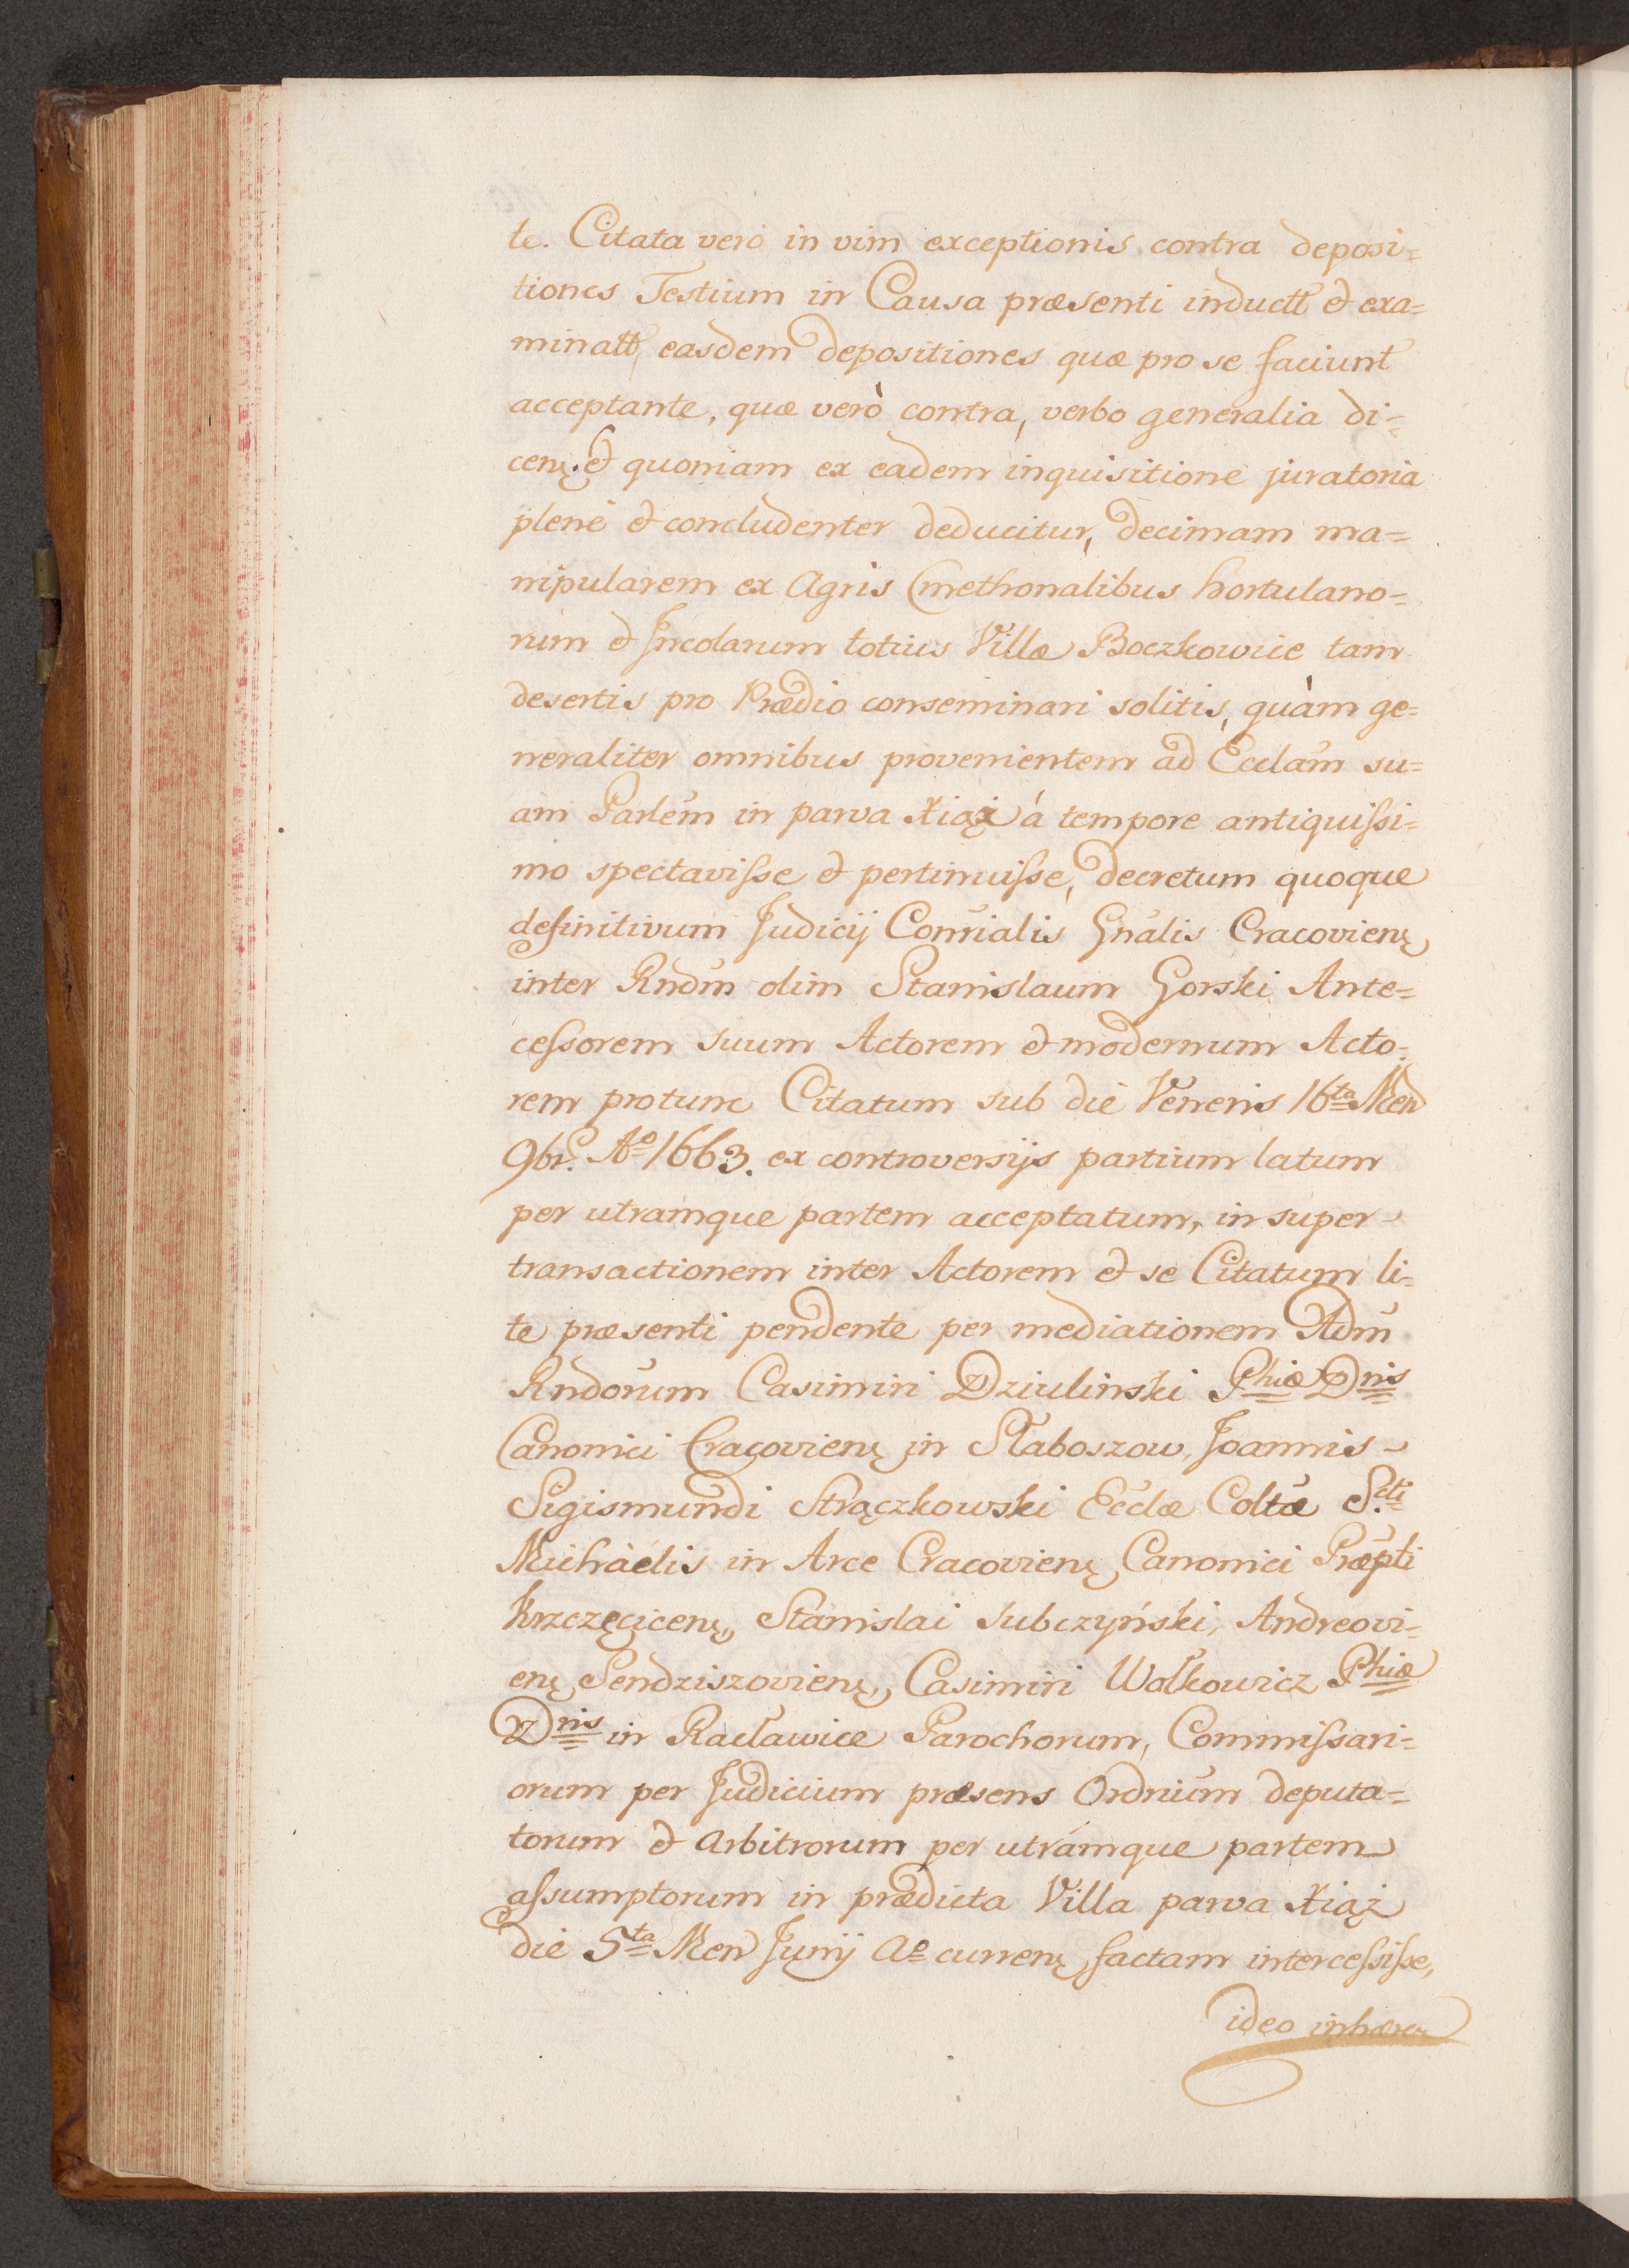 te. Citata verò in vim exceptionis contra deposi=
tiones Testium in Causa præsenti inductt et exa=
minatt, easdem depositiones quæ pro se faciunt
acceptante, quæ verò contra, verbo generalia di=
cenę. et quoniam ex eadem inquisitione juratoria
plenè et concludenter deducitur, decimam ma=
nipularem ex Agris Cmethonalibus hortulano=
rum et Incolarum totius Villæ Boczkowice tam
desertis pro Prædio conseminari solitis, quàm ge=
neraliter omnibus provenientem ad Eccl̃am su=
am Parlẽm in parva Xiąż á tempore antiquissi=
mo spectavisse et pertinuisse, decretum quoque
definitivum Judicij Conr̃ialis Gñalis Cracovienę
inter Rndũm olim Stanislaum Gorski Ante=
cessorem suum Actorem et modernum Acto=
rem protunc Citatum sub die Veneris 16ta Men
9br. Aº 1663. ex controversijs partium latum
per utramque partem acceptatum, in super
transactionem inter Actorem et se Citatum li=
te præsenti pendente per mediationem Adm̃
Rndorũm Casimiri Dziulinski Phiæ Dris
Canonici Cracovienę in Słaboszow, Joannis
Sigismundi Strączkowski Eccl̃æ Coltæ̃ S.cti
Michaèlis in Arce Cracovienę Canonici Præpti
Krzczęcicenę, Stanislai Subczyński, Andreovi=
enę Sendziszovienę, Casimiri Wolkowicz Phiæ
Dris in Racławice Parochorum, Commissari=
orum per Judicium præsens Ordriũm deputa=
torum et Arbitrorum per utrámque partem
assumptorum in prædicta Villa parva Xiąż
die 5ta Men Junij Aº currenę factam intercessisse,
ideo inhæren